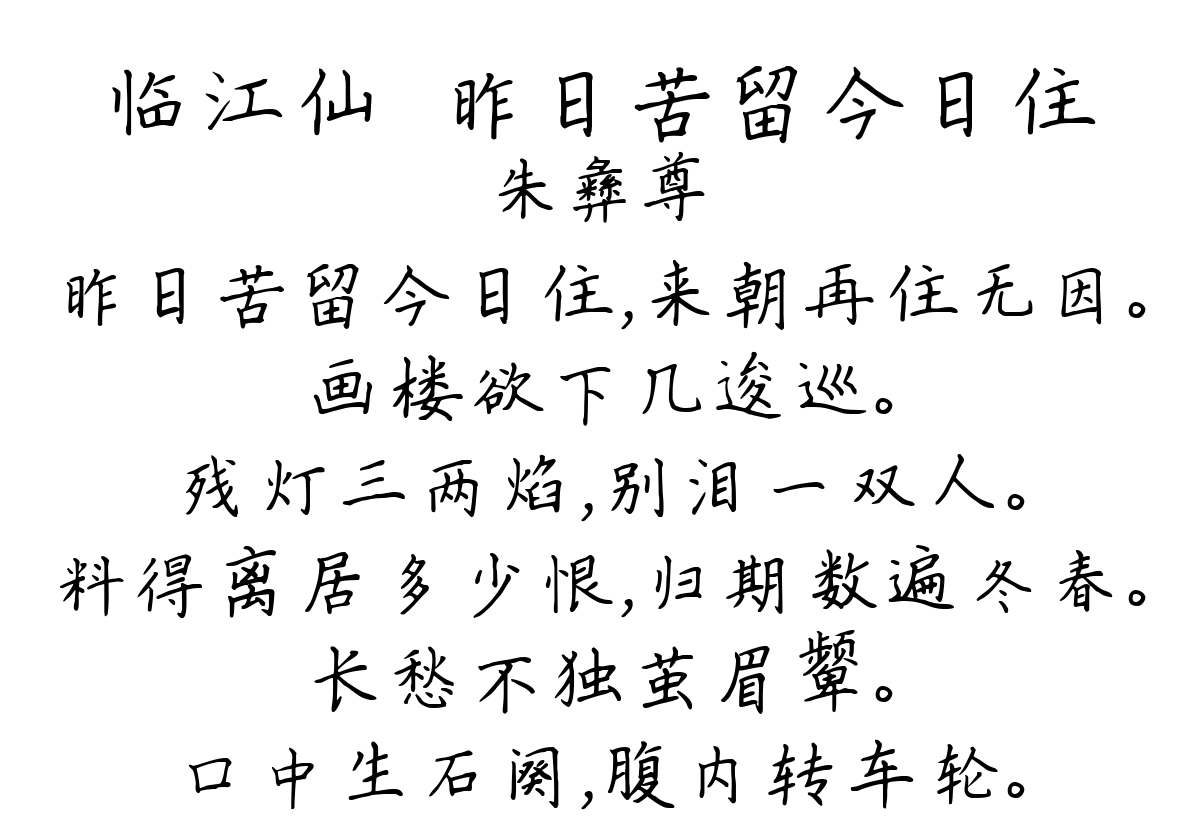 临江仙 昨日苦留今日住
朱彝尊
昨日苦留今日住,来朝再住无因。
画楼欲下几逡巡。
残灯三两焰,别泪一双人。
料得离居多少恨,归期数遍冬春。
长愁不独茧眉颦。
口中生石阕,腹内转车轮。